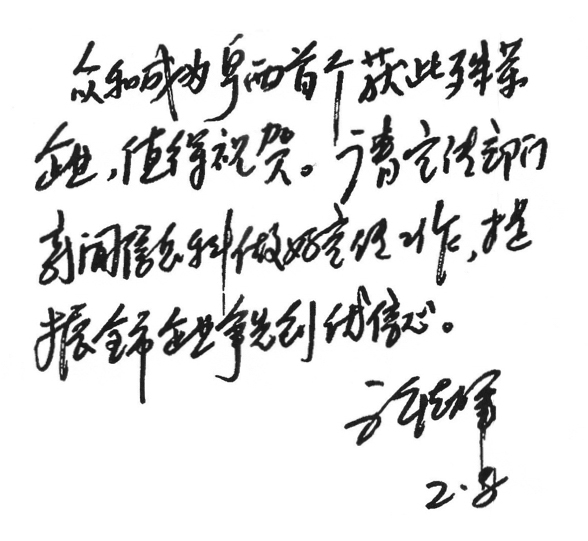 众和成为阜西首个获此殊荣
企业,值得祝贺。请宣传部门
新闻信息科做好宣传工作,提
振全市企业争先创优信心。
2.8